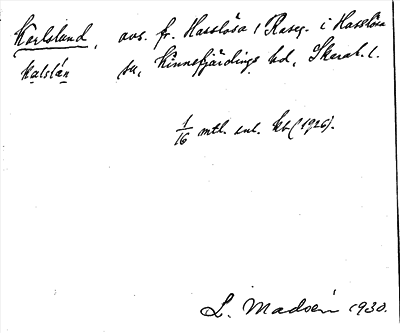 Karlslund, avs. fr. Hasslösa 1 Raseg. i Hasslösa
kalslán sn, Kinnefjärdings hd, Skarab. l.
1/16 mtl. enl. kb (1926).
L. Madsén 1930.